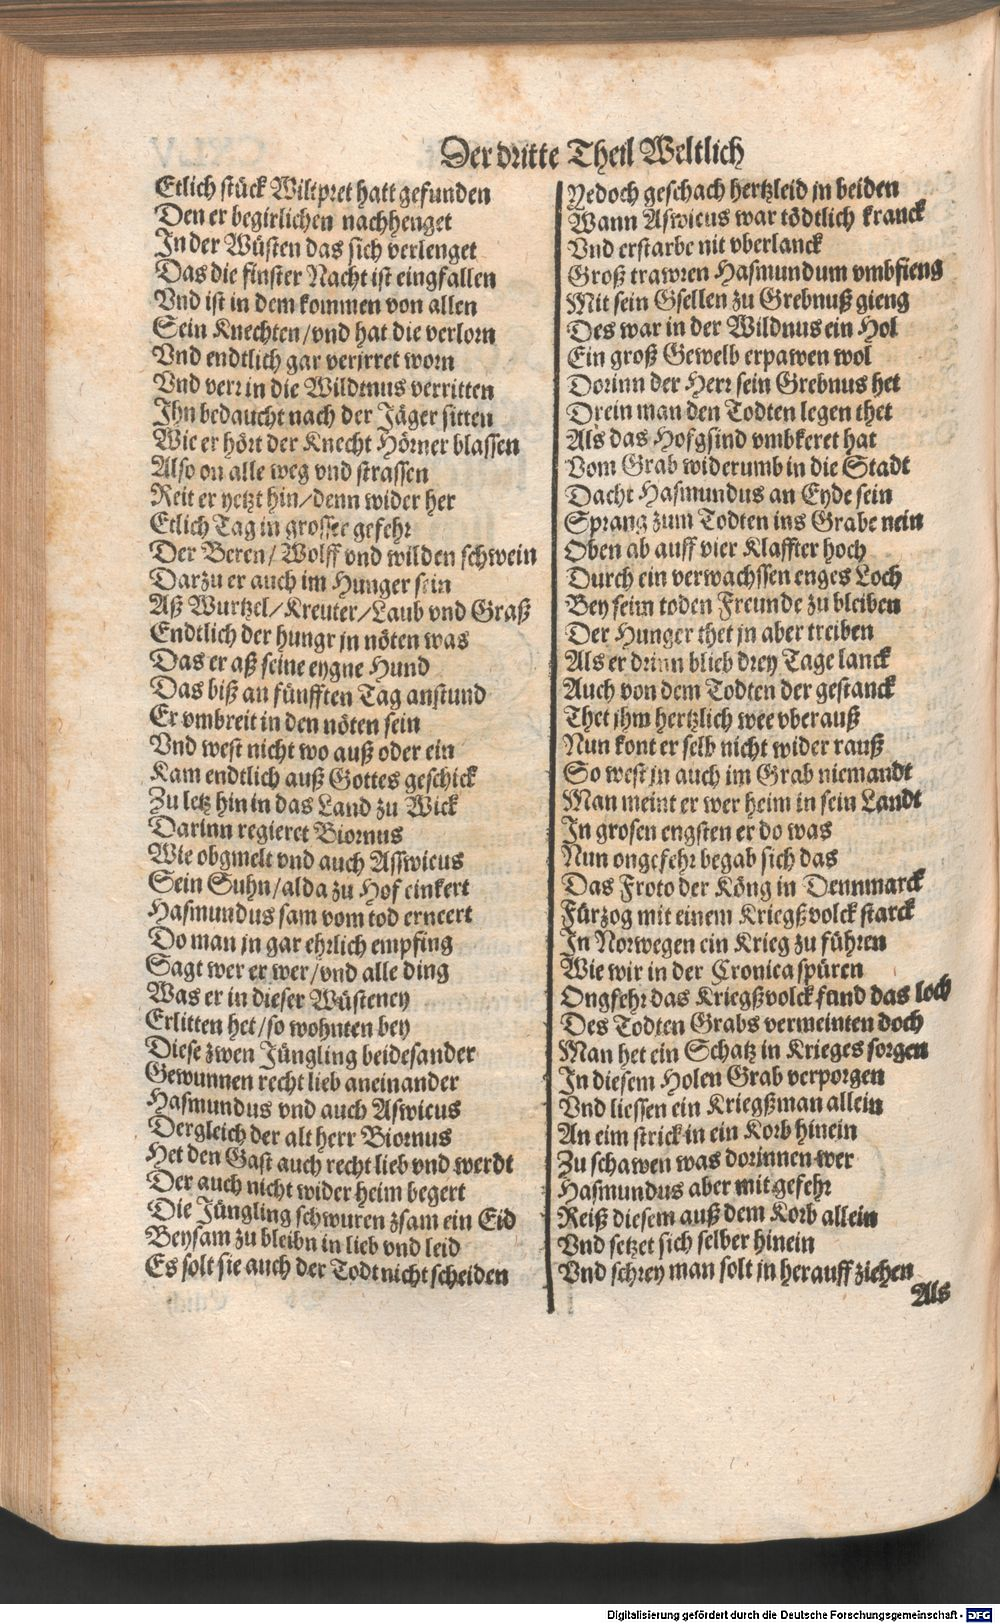 Der dritte Theil Weltlich
Etlich stück Wiltpret hatt gefunden
Den er begirlichen nachhenget
In der Wüsten das sich verlenget
Das die finster Nacht ist eingfallen
Vnd ist in dem kommen von allen
Sein Knechten/vnd hat die verlorn
Vnd endtlich gar verirret worn
Vnd verr in die Wildtnus verritten
Ihn bedaucht nach der Jäger sitten
Wie er hört der Knecht Hörner blassen
Also on alle weg vnd strassen
Reit er yetzt hin/denn wider her
Etlich Tag in grosser gefehr
Der Beren/ Wolff vnd wilden schwein
Darzu er auch im Hunger sein
Aß Wurtzel/Kreuter/Laub vnd Graß
Endtlich der hungr jn nöten was
Das er aß seine eygne Hund
Das biß an fünfften Tag anstund
Er vmbreit in den nöten sein
Vnd west nicht wo auß oder ein
Kam endtlich auß Gottes geschick
Zu letz hin in das Land zu Wick
Darinn regieret Biornus
Wie obgmelt vnd auch Asswicus
Sein Suhn/alda zu Hof einkert
Hasmundus sam vom tod erneert
Do man jn gar ehrlich empfing
Sagt wer er wer/vnd alle ding
Was er in dieser Wüsteney
Erlitten het/so wohnten bey
Diese zwen Jüngling beidesander
Gewunnen recht lieb aneinander
Hasmundus vnd auch Aswicus
Dergleich der alt herr Biornus
Het den Gast auch recht lieb vnd werdt
Der auch nicht wider heim begert
Die Jüngling schwuren zsam ein Eid
Beysam zu bleibn in lieb vnd leid
Es solt sie auch der Todt nicht scheiden
Yedoch geschach hertzleid jn beiden
Wann Aswicus war tödtlich kranck
Vnd erstarbe nit vberlanck
Groß trawren Hasmundum vmbfieng
Mit sein Gsellen zu Grebnuß gieng
Des war in der Wildnus ein Hol
Ein groß Gewelb erpawen wol
Dorinn der Herr sein Grebnus het
Drein man den Todten legen thet
Als das Hofgsind vmbkeret hat
Vom Grab widerumb in die Stadt
Dacht Hasmundus an Eyde sein
Sprang zum Todten ins Grabe nein
Oben ab auff vier Klaffter hoch
Durch ein verwachssen enges Loch
Bey seim toden Freunde zu bleiben
Der Hunger thet jn aber treiben
Als er drinn blieb drey Tage lanck
Auch von dem Todten der gestanck
Thet jhm hertzlich wee vberauß
Nun kont er selb nicht wider rauß
So west jn auch im Grab niemandt
Man meint er wer heim in sein Landt
In grosen engsten er do was
Nun ongefehr begab sich das
Das Froto der Köng in Dennmarck
Fürzog mit einem Kriegßvolck starck
In Norwegen ein Krieg zu führen
Wie wir in der Cronica spüren
Ongfehr das Kriegßvolck fand das loch
Des Todten Grabs vermeinten doch
Man het ein Schatz in Krieges sorgen
In diesem Holen Grab verporgen
Vnd liessen ein Kriegßman allein
An eim strick in ein Korb hinein
Zu schawen was dorinnen wer
Hasmundus aber mit gefehr
Reiß diesem auß dem Korb allein
Vnd setzet sich selber hinein
Vnd schrey man solt jn herauff ziehen
Als
Digitalisierung gefördert durch die Deutsche Forschungsgemeinschaft - DFG